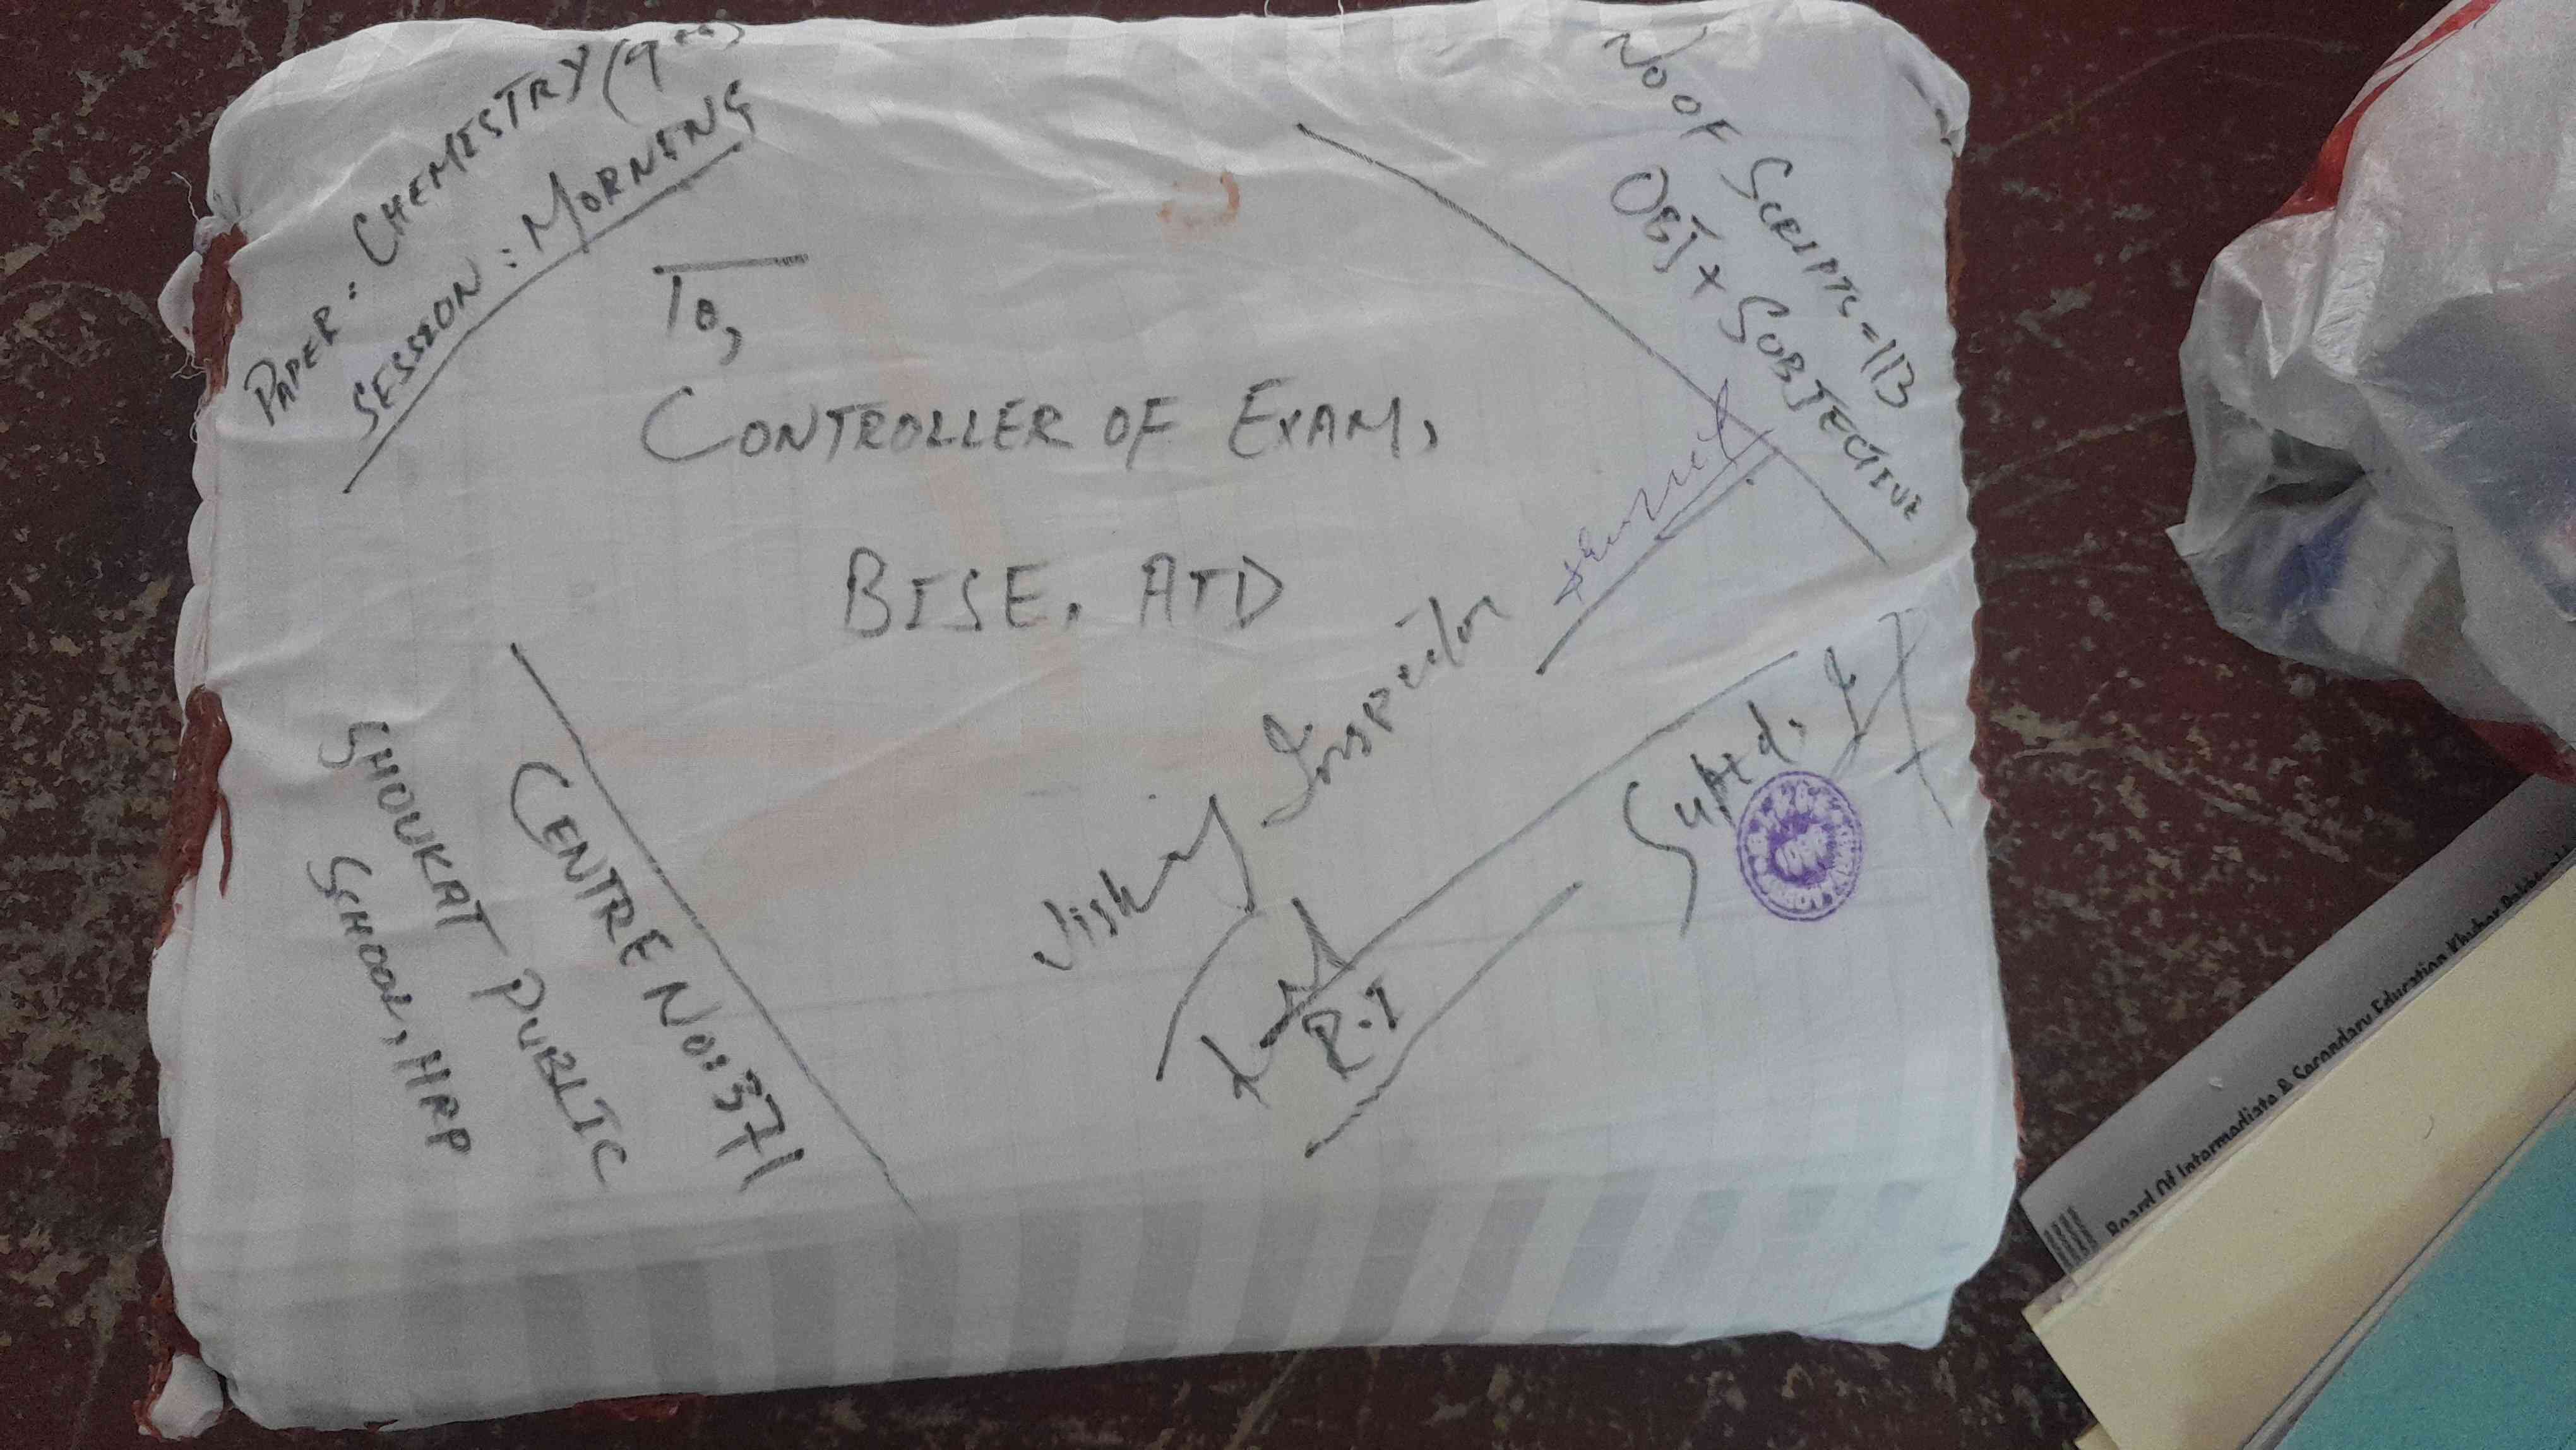 PAPER: CHEMISTRY (9th)
SESSION: MORNING
NO OF SCRIPTS = 113
OBJ + SUBJECTIVE
To,
CONTROLLER OF EXAM,
BISE, ATD
CENTRE NO: 371
SHOUKAT PUBLIC
SCHOOL, HRP
Inspector
R.I
Suptd.
Board Of Intermediate & Secondary Education Khyber